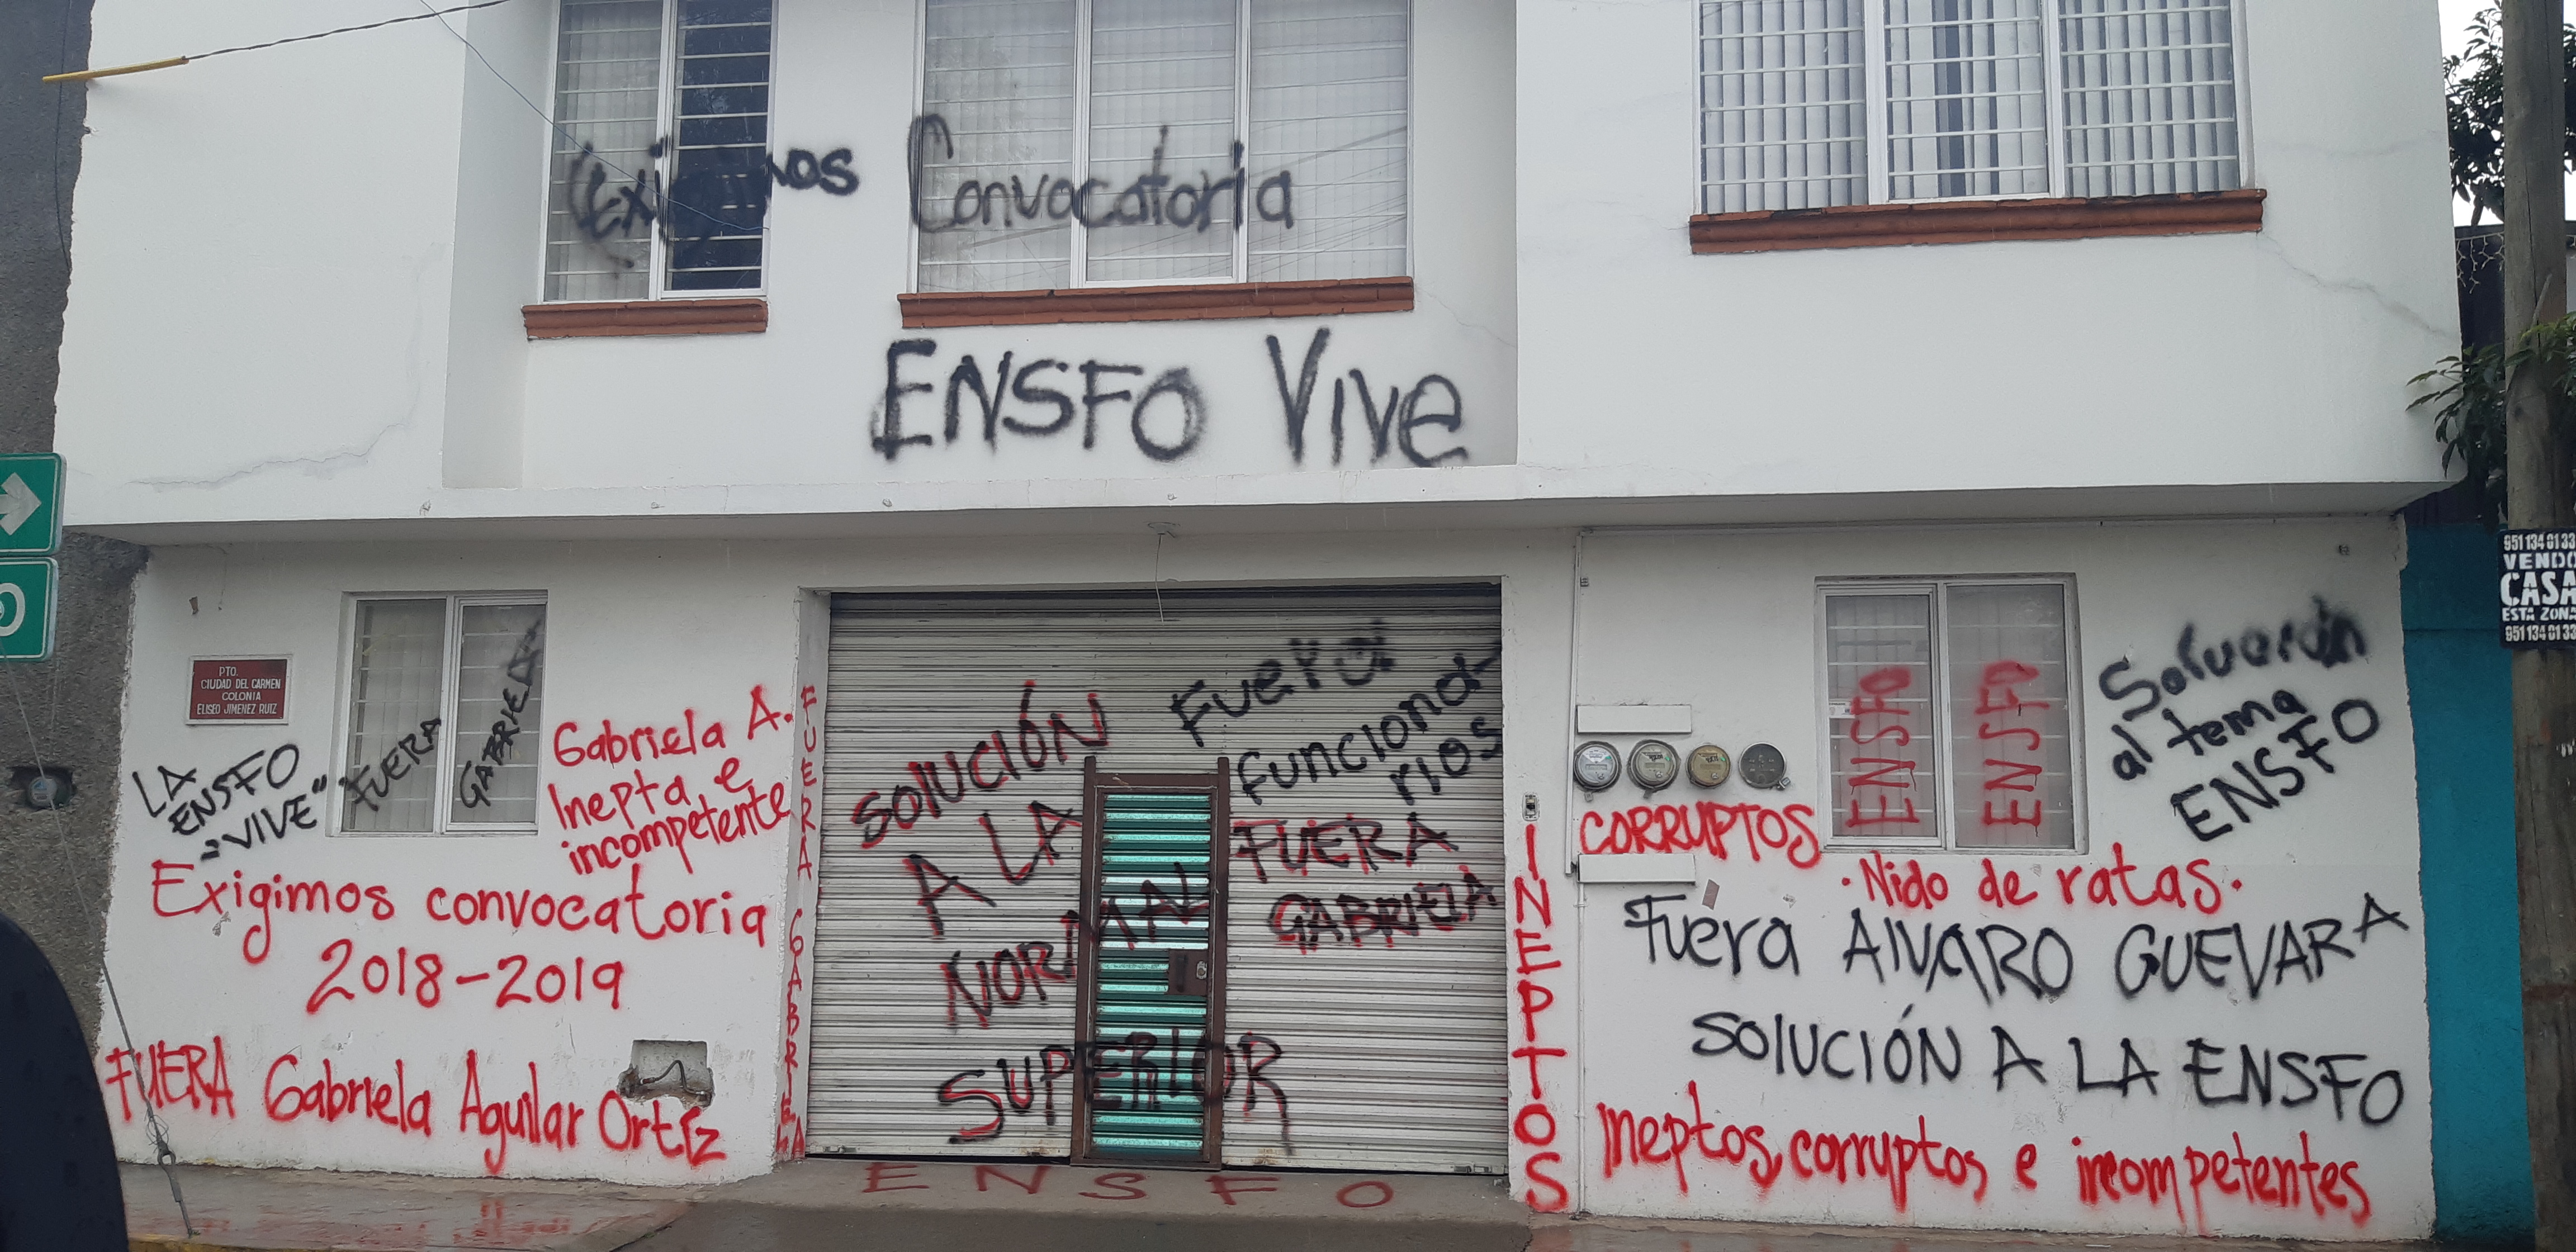 Exigimos Convocatoria
ENSFO Vive
PTO.
CIUDAD DEL CARMEN
COLONIA
ELISEO JIMENEZ RUIZ
LA
ENSFO
"VIVE"
FUERA
GABRIELA
Gabriela A.
Inepta e
incompetente
Exigimos convocatoria
2018-2019
FUERA Gabriela Aguilar Ortíz
FUERA GABRIELA
SOlUCIÓN
A LA
NORMAL
SUPERIOR
Fuera
funciona-
rios
FUERA
GABRIELA
ENSFO
INEPTOS
CORRUPTOS
ENSFO
ENSFO
Solución
al tema
ENSFO
. Nido de ratas.
Fuera AlVARO GUEVARA
SOlUCIÓN A LA ENSFO
Ineptos, corruptos e incompetentes
951 134 01 33
VENDO
CASA
ESTA ZONA
951 134 01 33